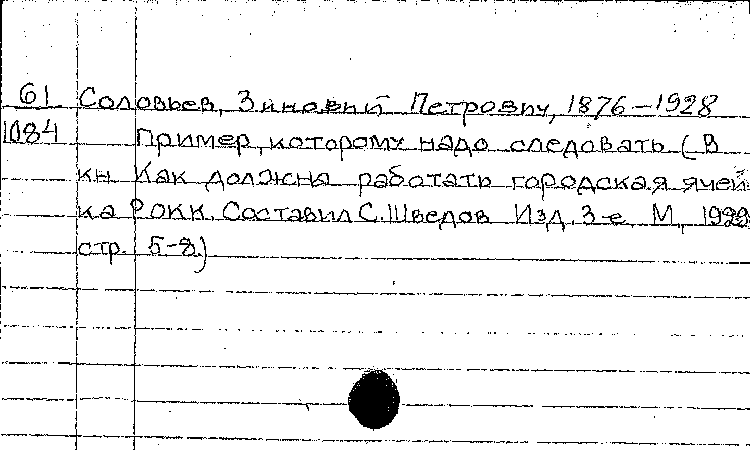 61 Соловьев, Зиновий Петрович, 1876-1928
1084 Пример, которому надо следовать (В
кн. Как должна работать городская ячей
ка РОКК. Составил С. Шведов Изд. 3-е М,
стр. 5-8.)